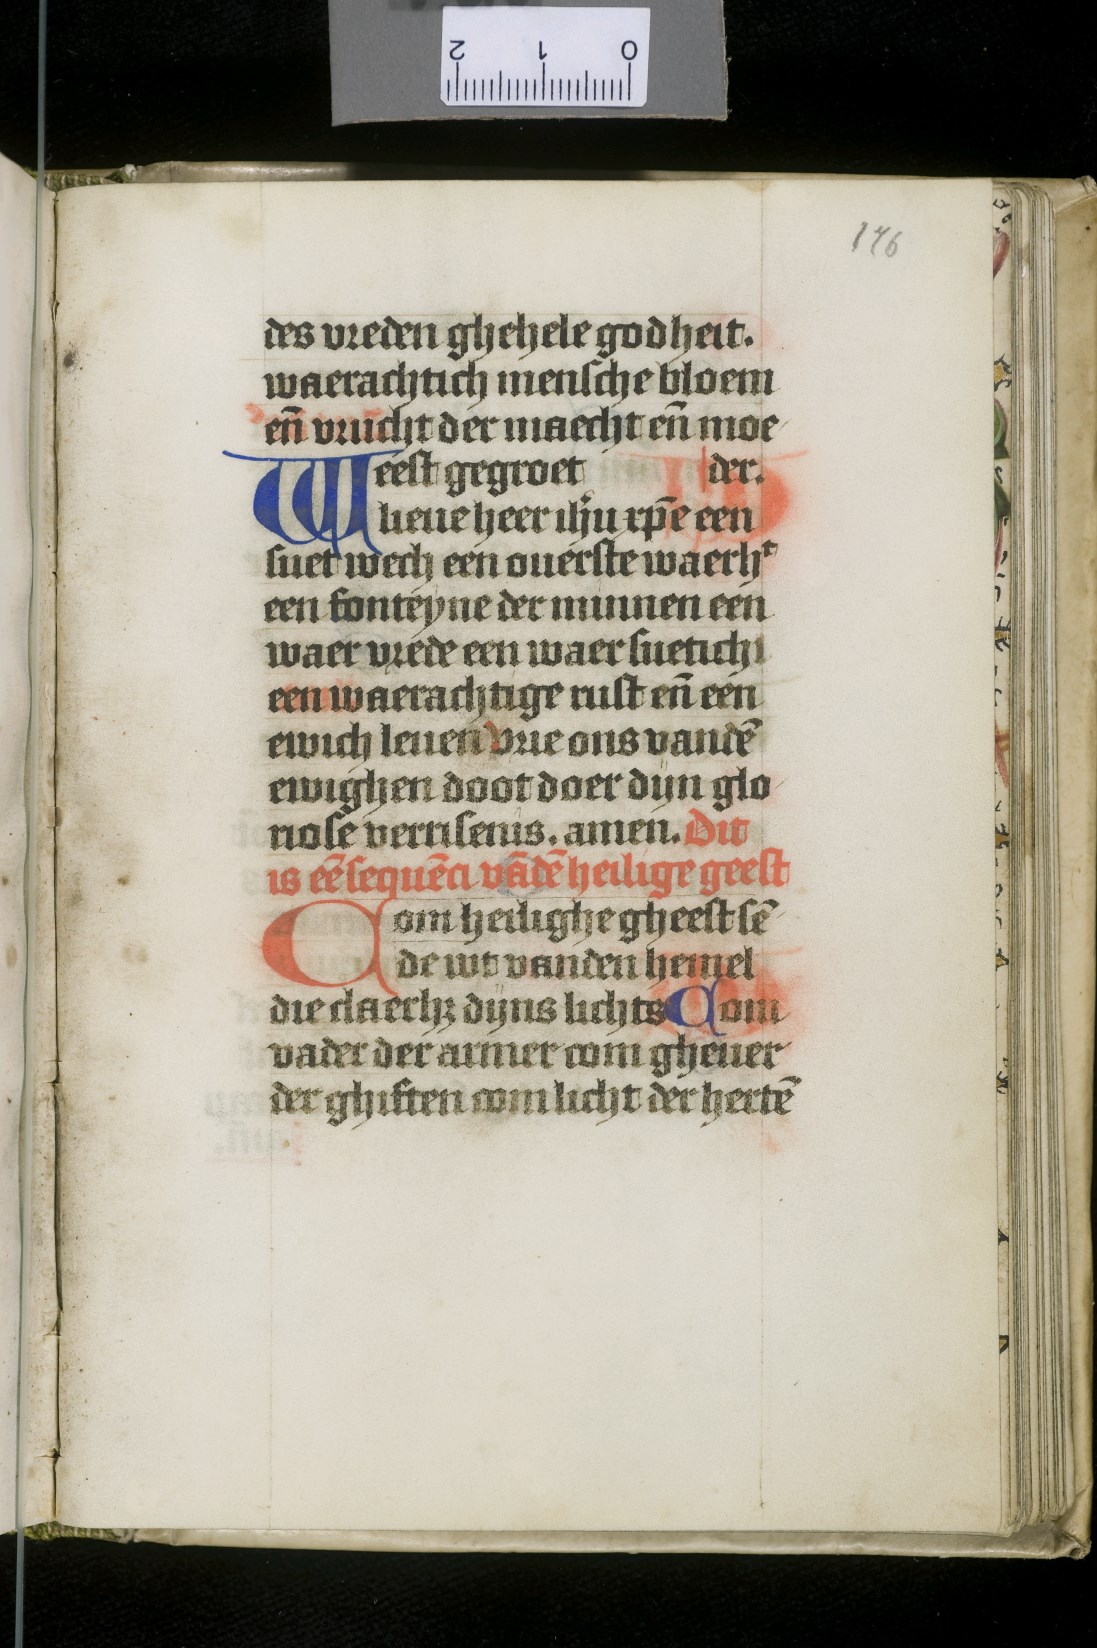 2 1 0
146
des vreden ghehele godheit.
waerachtich mensche bloem
en̄ vrucht der maecht en̄ moe
Weest gegroet der.
lieue heer ih̄u xp̄e een
suet wech een ouerste waerhᵗ
een fonteyne der minnen een
waer vrede een waer suetich
een waerachtige rust en̄ een
ewich leuen Vrie ons vandē
ewighen doot doer dijn glo
riosē verrisenis. amen. Dit
is eē sequēci vādē heilige geest
Com heilighe gheest sē
de wt vanden hemel
die claerhꝫ dijns lichts Com
vader der armer com gheuer
der ghiften com licht der hertē